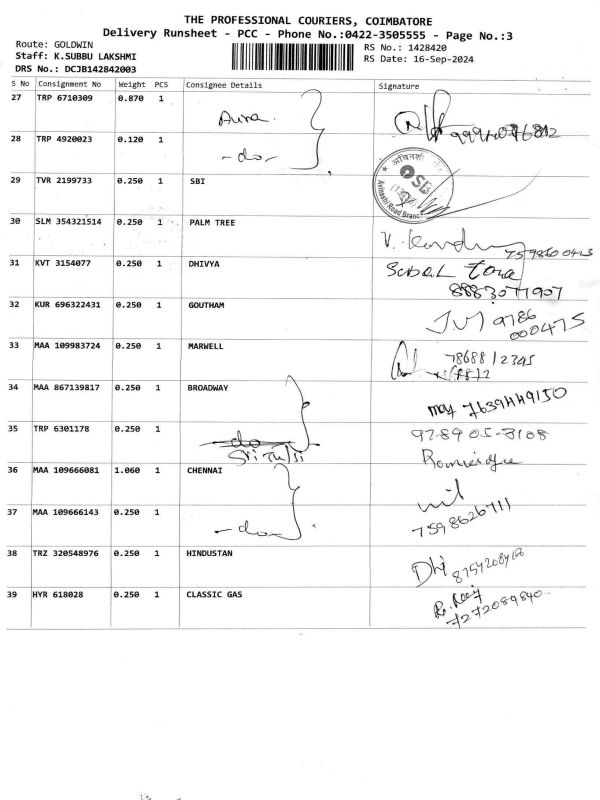 THE PROFESSIONAL COURIERS, COIMBATORE
Delivery Runsheet - PCC - Phone No.:0422-3505555 - Page No.:3
Route: GOLDWIN
RS No.: 1428420
Staff: K.SUBBU LAKSHMI
RS Date: 16-Sep-2024
DRS No.: DCJB142842003
S No Consignment No Weight PCS Consignee Details Signature
27 TRP 6710309 0.870 1
28 TRP 4920023 0.120 1 -do-
29 TVR 2199733 0.250 1 SBI
Avinashi Road Branch
30 SLM 354321514 0.250 1 PALM TREE
31 KVT 3154077 0.250 1 DHIVYA
8883077907
32 KUR 696322431 0.250 1 GOUTHAM
9786
000475
33 MAA 109983724 0.250 1 MARWELL
7868812345
34 MAA 867139817 0.250 1 BROADWAY 7639449150
35 TRP 6301178 0.250 1 do
97-89 05-3108
36 MAA 109666081 1.060 1 CHENNAI
37 MAA 109666143 0.250 1 -do- 7598626711
38 TRZ 320548976 0.250 1 HINDUSTAN
39 HYR 618028 0.250 1 CLASSIC GAS
7272089840